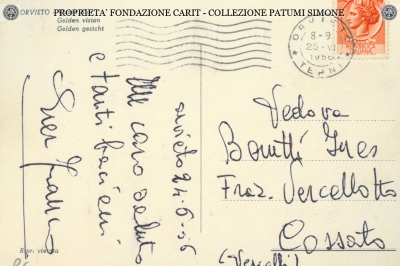 PROPRIETA' FONDAZIONE CARIT - COLLEZIONE PATUMI SIMONE
ORVIETO
Golden vision
Golden gesicht
ORVIETO
8-9
25-VI
1956
TERNI
orvieto 24-6-56
Un caro saluto
e tanti bacioni
Vedova
Ines
Fraz. Vercellotto
Cossato
(Vercelli)
Ripr. vietata